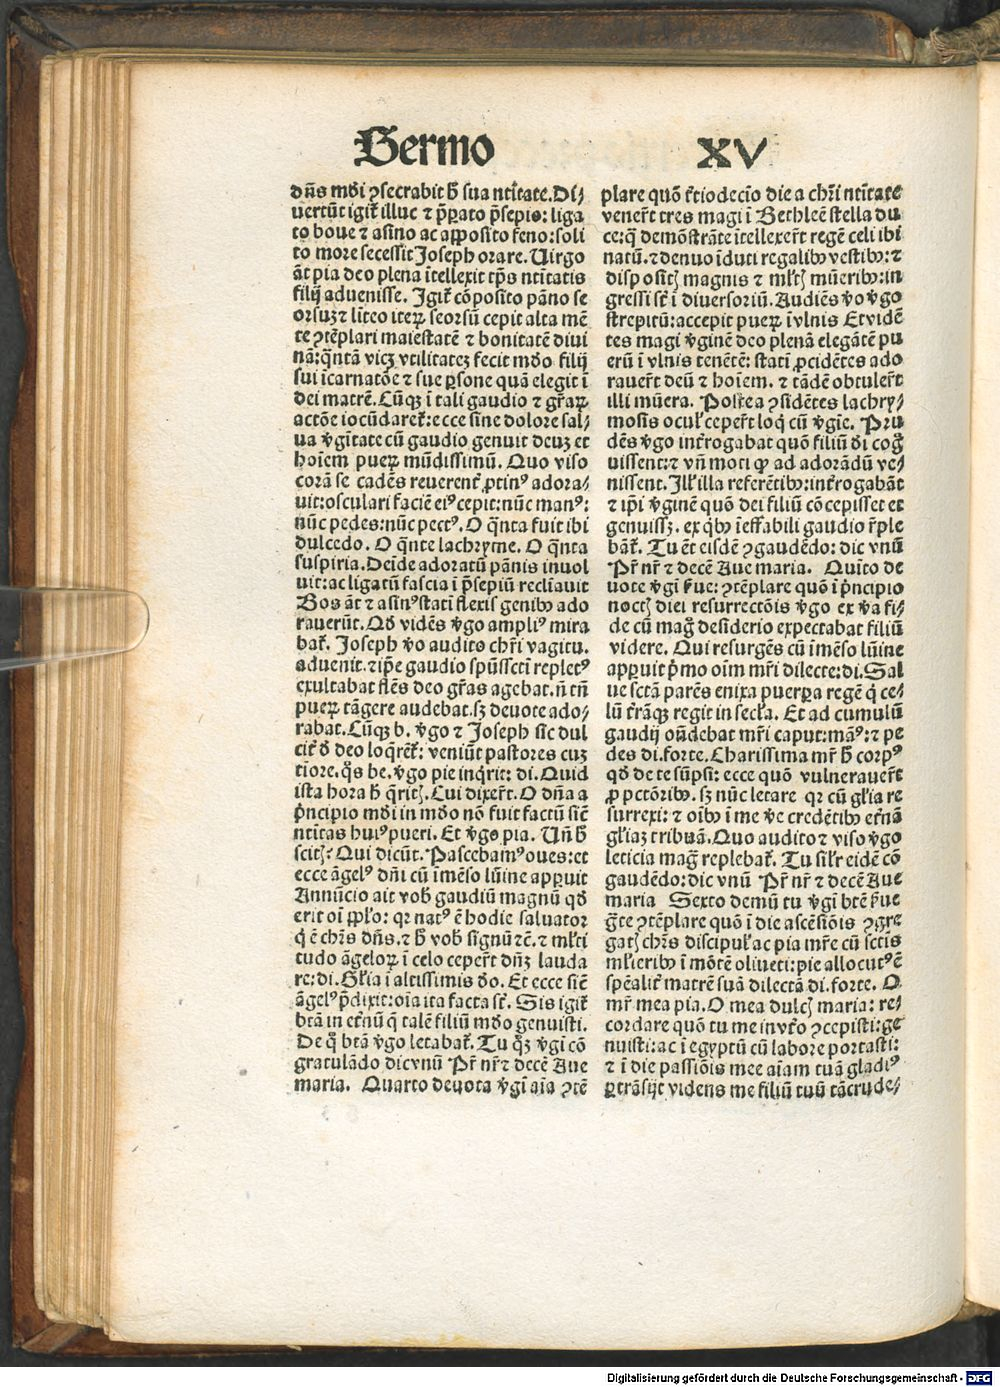 Sermo XV
dn̄s mūdi ꝯsecrabit h̄ sua ntīitate. Di⸗
vertūt igit᷑ illuc ⁊ p̄parato p̄sepio: liga
to boue ⁊ asino ac apposito feno: soli
to more secessit Joseph orare. Uirgo
āt pia deo plena ītellexit tp̄s ntīitatis
filij aduenisse. Igit᷑ cōposito pāno se
orsuꝫ ⁊ līteo iteꝝ seorsū cepit alta mē
te ꝯtēplari maiestatē ⁊ bonitatē diui
nā: q̄ntā vicꝫ vtilitateꝫ fecit mūdo filij
sui īcarnatōe ⁊ sue ꝑsone quā elegit ī
dei matrē. Cūqꝫ ī tali gaudio ⁊ gr̄aꝝ
actōe iocūdaret᷑: ecce sine dolore sal⸗
ua v̄gītate cū gaudio genuit deuꝫ et
hoīem pueꝝ mūdissimū. Quo viso
corā se cadēs reuerent᷑ ꝓtinꝰ adora⸗
uit: osculari faciē eiꝰ cepit: nūc manꝰ:
nūc pedes: nūc pectꝰ. O q̄nta fuit ibi
dulcedo. O q̄nte lachryme. O q̄nta
suspiria. Deīde adoratū pānis inuol
uit: ac ligatū fascia ī p̄sepiū reclīauit
Bos āt ⁊ asinꝰ statī flexis genibꝰ ado
rauerūt. Qd̄ vidēs v̄go ampliꝰ mira
bat᷑. Joseph v̄o audito chr̄i vagitu.
aduenit. ⁊ ip̄e gaudio spūssctī repletꝰ
exultabat flēs deo gr̄as agebat. n̄ tn̄
pueꝝ tāgere audebat. sꝫ deuote ado⸗
rabat. Cūqꝫ b. v̄go ⁊ Joseph sic dul
cit᷑ d̄ deo loq̄rēt᷑: veniūt pastores cuꝫ
tīore. q̄s be. v̄go pie inq̄rit: di. Quid
ista hora h̄ q̄ritꝭ. Cui dixer̄t. O dn̄a a
p̄ncipio mūdi in mūdo nō fuit factū sicē
ntīitas huiꝰ pueri. Et v̄go pia. Un̄ h̄
scitꝭ? Qui dicūt. Pascebamꝰ oues: et
ecce āgelꝰ dn̄i cū īmēso lūine apparuit
Annūcio ait vob̄ gaudiū magnū qd̄
erit oī pp̄lo: qꝛ natꝰ ē hodie saluator
q̄ ē chr̄s dn̄s. ⁊ h̄ vob̄ signū ꝛē. ⁊ ml̄ti
tudo āgeloꝝ ī celo ceper̄t dn̄ꝫ lauda
re: di. Gl̄ia ī altissimis deo. Et ecce sicē
āgelꝰ p̄dixit: oīa ita facta sūt. Sis igit᷑
btā in et᷑nū q̄ talē filiū mūdo genuisti.
De q̄ btā v̄go letabat᷑. Tu q̄ꝫ v̄gi cō
gratulādo dic vnū Pr̄ nr̄ ⁊ decē Aue
maria. Quarto deuota v̄gī aīa ꝯtē
plare quō tr̄tiodecīo die a chr̄i ntīitate
vener̄t tres magi ī Bethleē stella du
ce: q̄ demōstrāte ītellexer̄t regē celi ibi
natū. ⁊ denuo īduti regalibꝰ vestibꝰ: ⁊
dispositꝭ magnis ⁊ ml̄tꝭ mūeribꝰ: in
gressi sūt ī diuersoriū. Audiēs v̄o v̄go
strepitū: accepit pueꝝ ī vlnis Et vidē
tes magi v̄ginē deo plenā elegātē pu
erū ī vlnis tenētē: statī ꝓcidētes ado
rauer̄t deū ⁊ hoīem. ⁊ tādē obtuler̄t
illi mūera. Postea ꝯsidētes lachry⸗
mosis ocul᷒ ceper̄t loq̄ cū v̄gīe. Pru
dēs v̄go int᷑rogabat quō filiū dei coḡ
uissent: ⁊ vn̄ moti qꝫ ad adorādū ve⸗
nissent. Jl᷒ illa referētibꝰ: int᷑rogabāt
⁊ ip̄i v̄ginē quō dei filiū cōcepisset et
genuissꝫ. ex q̄bꝰ īeffabili gaudio r̄ple
bāt᷑. Tu ēt eisdē ꝯgaudēdo: dic vnū
Pr̄ nr̄ ⁊ decē Aue maria. Quīto de
uote v̄gī aīe: ꝯtēplare quō ī p̄ncipio
noctꝭ diei resurrectōis v̄go ex v̄a fi⸗
de cū maḡ desiderio expectabat filiū
videre. Qui resurgēs cū īmēso lūine
apparuit p̄mo oīm mr̄i dilecte: di. Sal
ue sctā parēs enixa puerpera regē q̄ ce⸗
lū tr̄āqꝫ regit in secl̄a. Et ad cumulū
gaudij oñdebat mr̄i caput: manꝰ: ⁊ pe
des di. forte. Charissima mr̄ h̄ corpꝰ
qd̄ de te sūpsi: ecce quō vulnerauer̄t
ꝓ pctōribꝰ. sꝫ nūc letare qꝛ cū gl̄ia re
surrexi: ⁊ oībꝰ ī me v̄e credētibꝰ et᷑nā
gl̄iaꝫ tribuā. Quo audito ⁊ viso v̄go
leticia maḡ replebat᷑. Tu sil᷑r eidē cō
gaudēdo: dic vnū Pr̄ nr̄ ⁊ decē Aue
maria Sexto demū tu v̄gī btē
ꝯtēplare quō ī die ascēsiōis ꝯgre
gatꝭ chr̄s discipul᷒ ac pia mr̄e cū sctīs
ml᷑ieribꝰ ī mōtē oliueti: pie allocutꝰ ē
spēalit᷑ matrē suā dilectā di. forte. O
mr̄ mea pia. O mea dulcꝭ maria: re⸗
cordare quō tu me īnut᷑o ꝯcepisti: ge
nuisti: ac ī egyptū cū labore portasti:
⁊ ī die passiōis mee aīam tuā gladiꝰ
ꝑtrāsijt videns me filiū tuū tā crude⸗
Digitalisierung gefördert durch die Deutsche Forschungsgemeinschaft - DFG